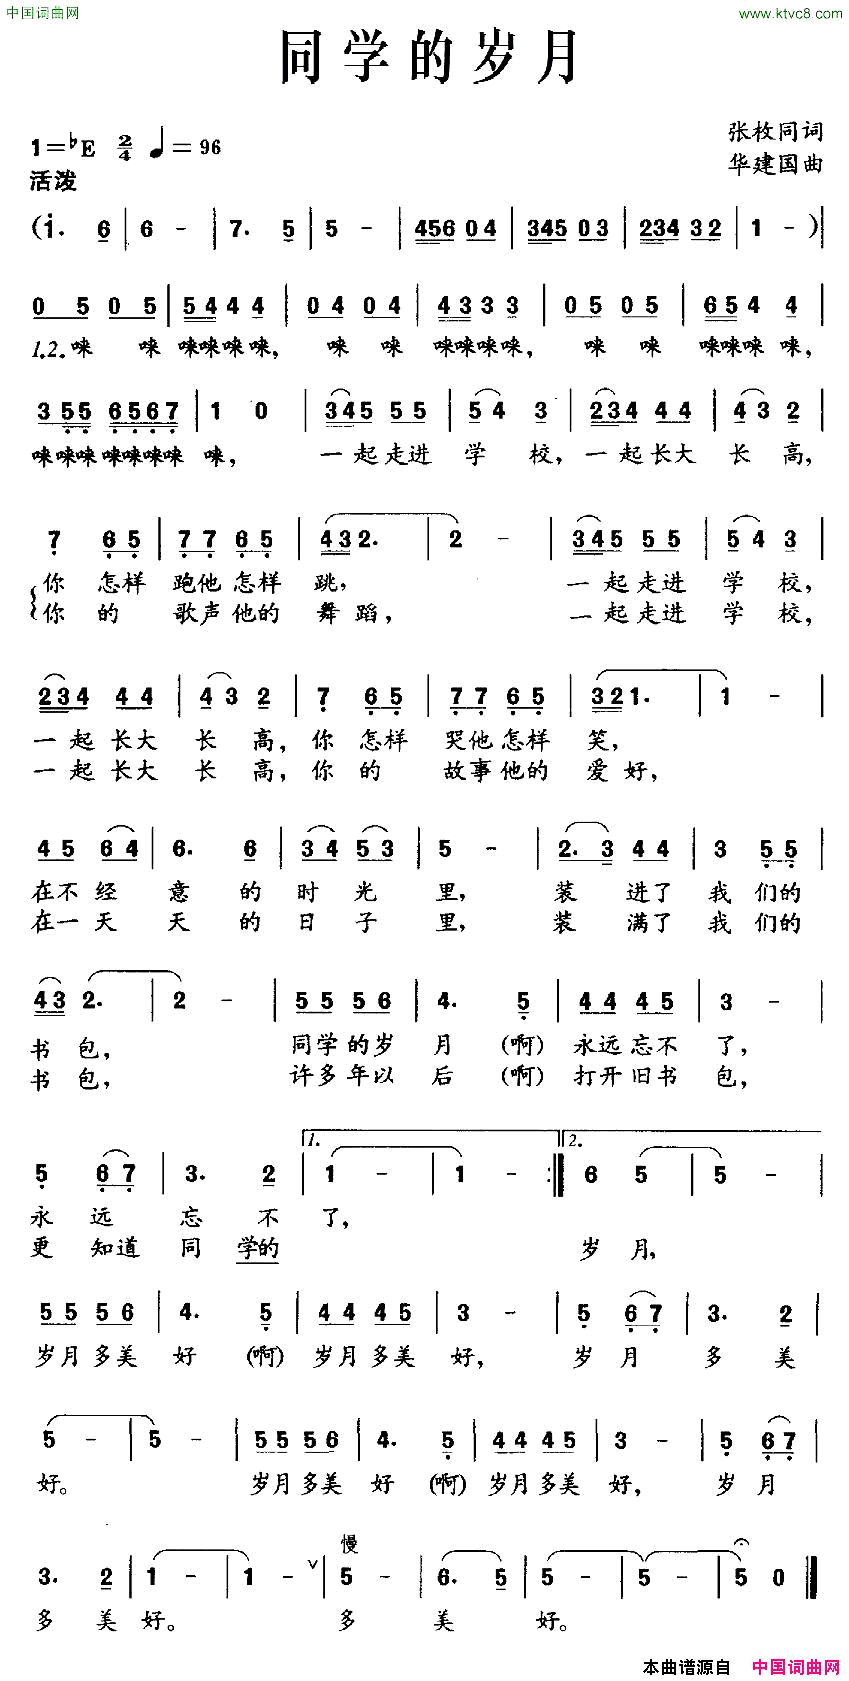 中国词曲网
www.ktvc8.com
同学的岁月
1=♭E 2/4 ♩=96
张枚同词
华建国曲
活泼
(i. 6 | 6 - | 7. 5 | 5 - | 456 04 | 345 03 | 234 32 | 1 - )|
0 5 0 5 | 54 4 4 4 | 04 04 | 43 3 3 3 | 05 05 | 65 4 4 |
1.2.唻 唻 唻唻唻唻, 唻 唻 唻唻唻唻, 唻 唻 唻唻唻 唻,
3 55 6567 | 1 0 | 345 55 | 54 3 | 234 44 | 43 2 |
唻唻唻 唻唻唻唻 唻, 一起走进 学 校, 一起长大 长 高,
7 65 | 77 65 | 432. | 2 - | 345 55 | 54 3 |
你 怎样 跑他 怎样 跳, 一起走进 学 校,
你 的 歌声他的 舞 蹈, 一起走进 学 校,
234 44 | 43 2 | 7 65 | 77 65 | 321. | 1 - |
一起长大 长 高, 你 怎样 哭他怎样 笑,
一起长大 长 高, 你 的 故事他的 爱好,
45 64 | 6. 6 | 34 53 | 5 - | 2.3 44 | 3 55 |
在不 经 意 的 时 光 里, 装 进了 我 们的
在一 天 天 的 日 子 里, 装 满了 我 们的
43 2. | 2 - | 55 56 | 4. 5 | 44 45 | 3 - |
书 包, 同学的岁 月 (啊) 永远忘不 了,
书 包, 许多年以 后 (啊) 打开旧书 包,
1. 2.
5 67 | 3. 2 | 1 - | 1 - :| 6 5 | 5 - |
永 远 忘 不 了,
更 知道 同 学的 岁 月,
55 56 | 4. 5 | 44 45 | 3 - | 5 67 | 3. 2 |
岁月多美 好 (啊) 岁月多美 好, 岁 月 多 美
5 - | 5 - | 55 56 | 4. 5 | 44 45 | 3 - | 5 67 |
好。 岁月多美 好 (啊) 岁月多美 好, 岁 月
慢
3. 2 | 1 - | 1 - ∨ | 5 - | 6. 5 | 5 - | 5 - | 5 0 ‖
多 美 好。 多 美 好。
本曲谱源自 中国词曲网